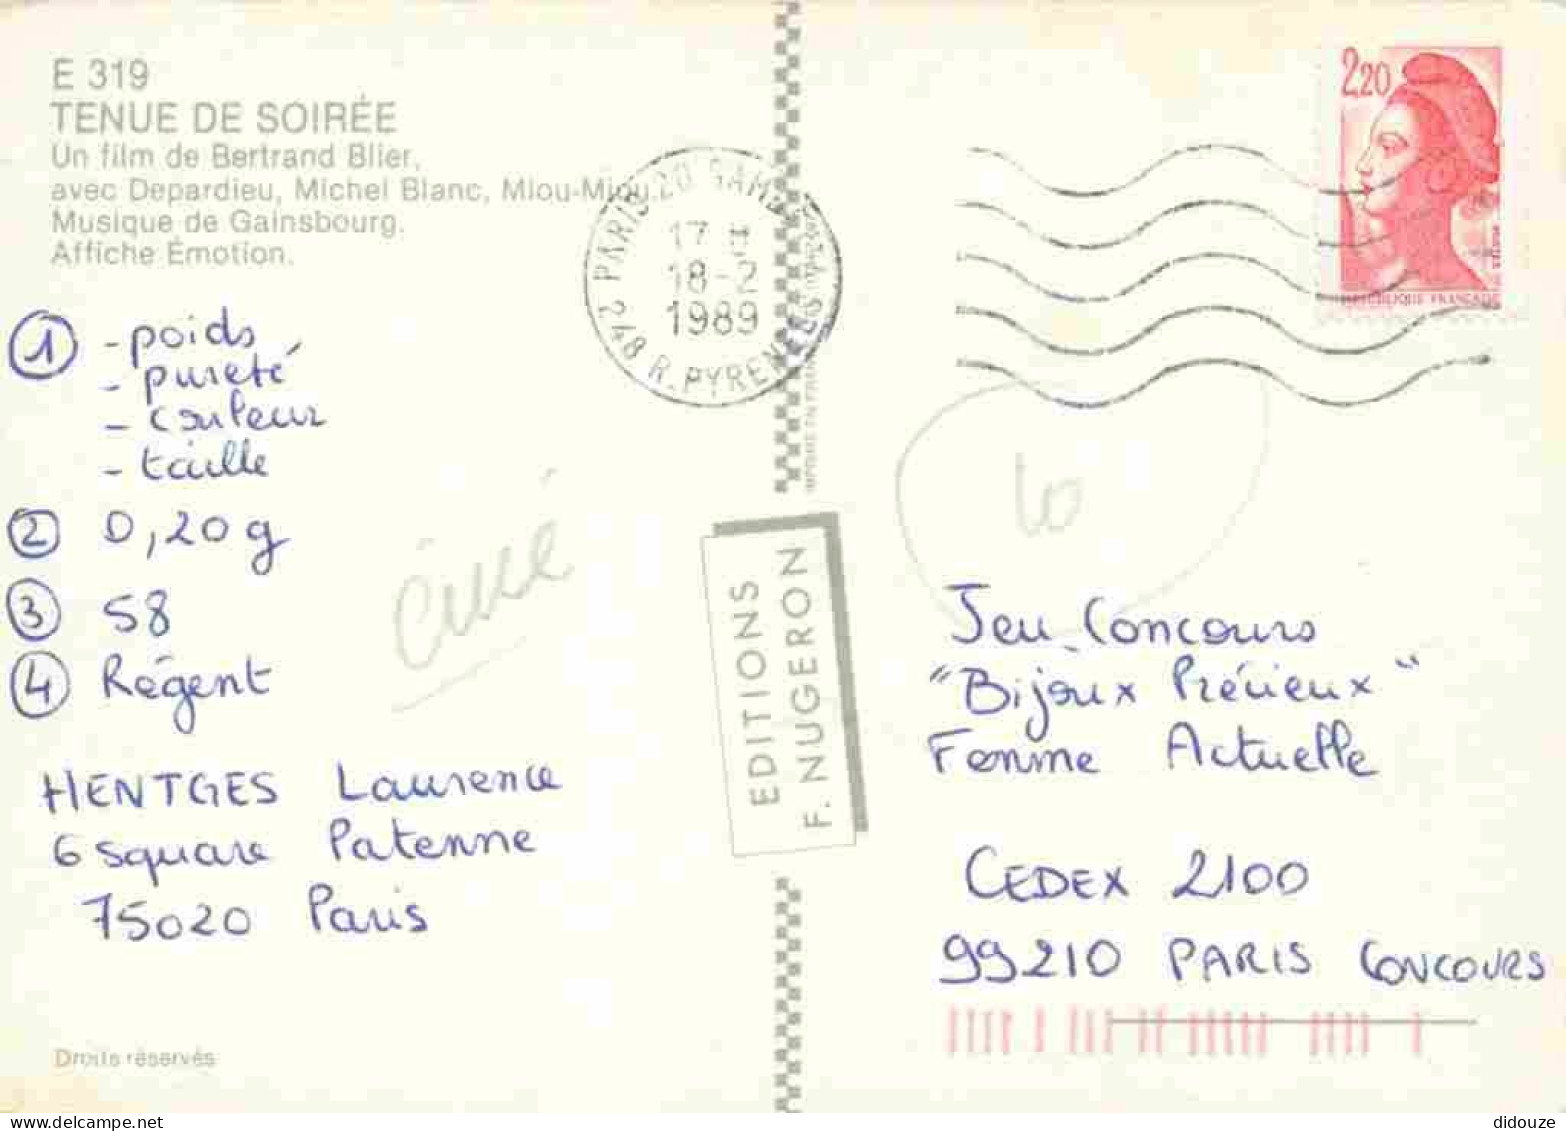 E 319
TENUE DE SOIRÉE
Un film de Bertrand Blier,
avec Depardieu, Michel Blanc, Miou-Miou.
Musique de Gainsbourg.
Affiche Émotion.
① - poids
- pureté
- couleur
- taille
② 0,20 g
③ 58
④ Régent
ciné
HENTGES Laurence
6 square Patenne
75020 Paris
Droits réservés
248 R. PYRENEES
PARIS 20 GAMBETTA
17 H
18-2
1989
EDITIONS
F. NUGERON
2,20
RÉPUBLIQUE FRANÇAISE
10
Jeu Concours
"Bijoux Précieux"
Femme Actuelle
CEDEX 2100
99210 PARIS CONCOURS
didouze